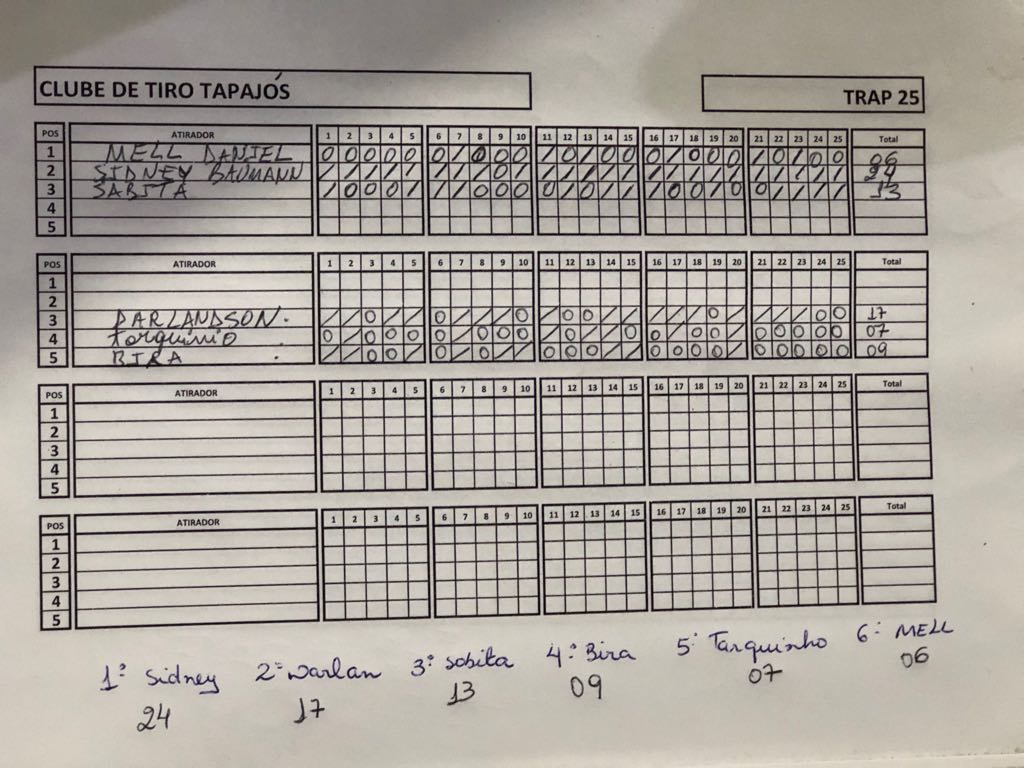 CLUBE DE TIRO TAPAJÓS TRAP 25
POS ATIRADOR 1 2 3 4 5 6 7 8 9 10 11 12 13 14 15 16 17 18 19 20 21 22 23 24 25 Total
1 MELL DANIEL 0 0 0 0 0 0 / 0 0 0 / 0 / 0 0 0 / 0 0 0 / 0 / 0 0 06
2 SIDNEY BAUMANN / / / / / / / / 0 / / / / / / / / / / / / / / / / 24
3 SABITA / 0 0 0 / / / 0 0 0 0 / 0 / / / 0 0 / 0 0 / / / / 13
4
5
POS ATIRADOR 1 2 3 4 5 6 7 8 9 10 11 12 13 14 15 16 17 18 19 20 21 22 23 24 25 Total
1
2
3 DARLANDSON. / / 0 / / 0 / / / 0 / 0 0 / / / / / 0 / / / / 0 0 17
4 Tarquinio 0 / 0 0 0 0 / 0 0 0 / 0 / / 0 0 / 0 0 / 0 0 0 0 0 07
5 BIRA . / / 0 0 / 0 / / 0 / 0 0 0 / / 0 0 0 0 / 0 0 0 0 0 09
POS ATIRADOR 1 2 3 4 5 6 7 8 9 10 11 12 13 14 15 16 17 18 19 20 21 22 23 24 25 Total
1
2
3
4
5
POS ATIRADOR 1 2 3 4 5 6 7 8 9 10 11 12 13 14 15 16 17 18 19 20 21 22 23 24 25 Total
1
2
3
4
5
1º Sidney 2º Darlan 3º Sobita 4º Bira 5º Tarquinho 6º MELL
24 17 13 09 07 06